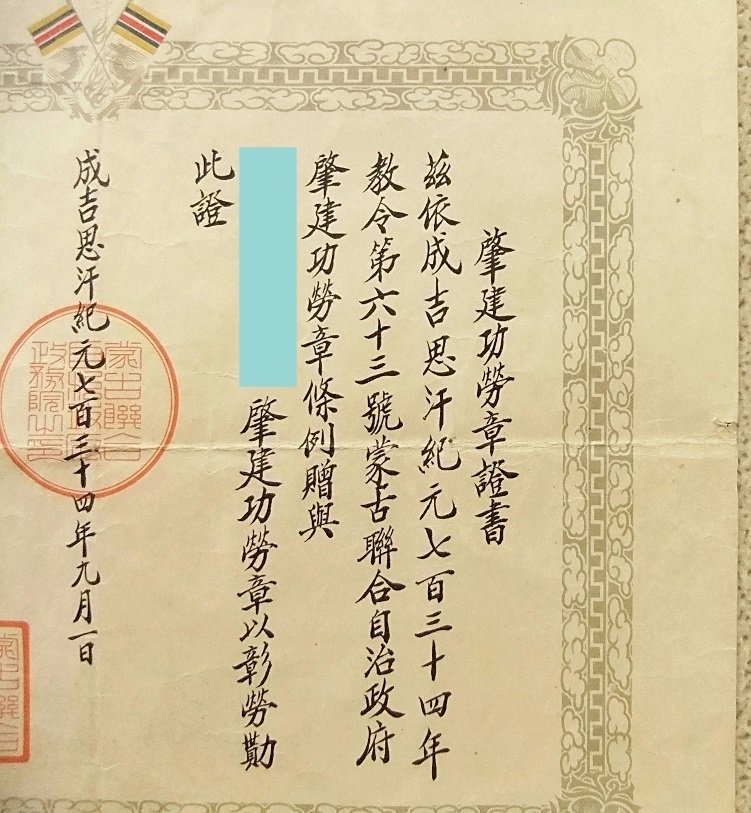 肇建功勞章證書
茲依成吉思汗紀元七百三十四年
教令第六十三號蒙古聯合自治政府
肇建功勞章條例贈與
肇建功勞章以彰勞勩
此證
成吉思汗紀元七百三十四年九月一日
蒙古聯合
自治政府
政務院之印
蒙古聯合